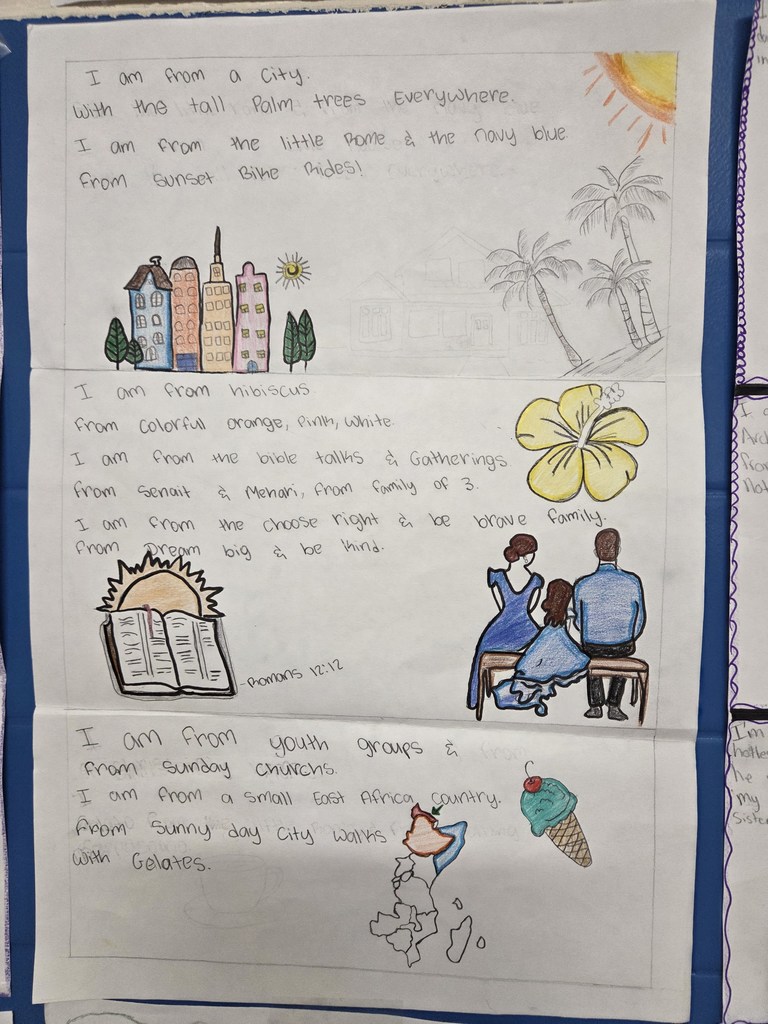 I am from a City.
With the tall Palm trees Everywhere.
I am from the little Rome & the navy blue
from sunset Bike Rides!
I am from hibiscus
from colorful orange, Pink, white.
I am from the bible talks & Gatherings
from Senait & Mehari, from family of 3.
I am from the choose right & be brave family.
from Dream big & be kind.
-Romans 12:12
I am from youth groups &
from Sunday churchs.
I am from a small East Africa country.
from Sunny day City walks
with Gelates.